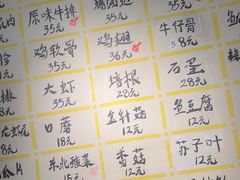 原味牛排
35元
35元
牛仔骨
58元
鸡软骨
35元
鸡翅
36元
石蛋
28元
大虾
35元
培根
28元
鱼豆腐
12元
口蘑
18元
金针菇
12元
苏子叶
12元
东北酸菜
15元
香菇
12元